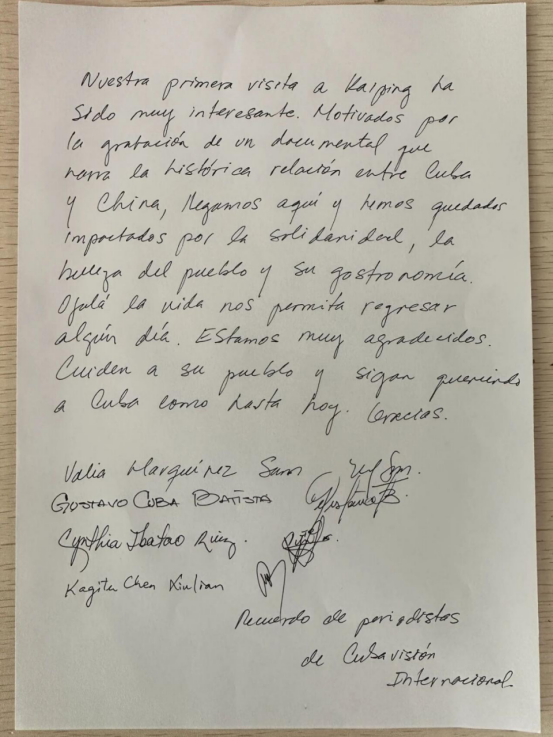 Nuestra primera visita a Kaiping ha
sido muy interesante. Motivados por
la grabación de un documental que
narra la histórica relación entre Cuba
y China, llegamos aquí y hemos quedados
impactados por la solidaridad, la
belleza del pueblo y su gastronomía.
Ojalá la vida nos permita regresar
algún día. Estamos muy agradecidos.
Cuiden a su pueblo y sigan queriendo
a Cuba como hasta hoy. Gracias.
Valia Marquínez Sam
GUSTAVO CUBA BATISTA
Cynthia Ruiz.
Kagita Chen Xiulian
Recuerdo de periodistas
de Cubavisión
Internacional